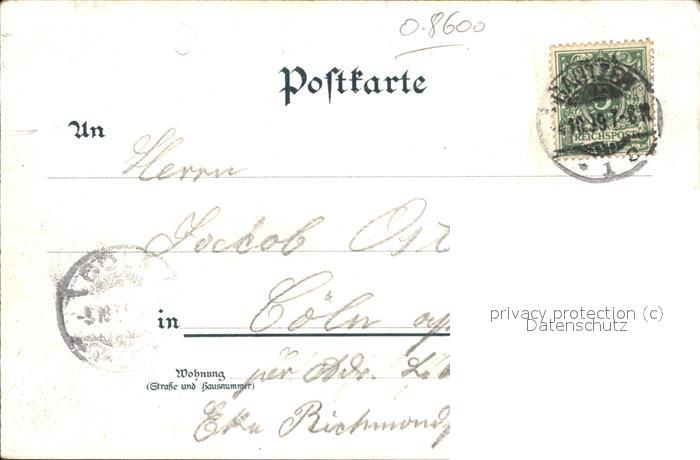 0-8600
Postkarte
BAUTZEN
5
REICHSPOST
1 c
An
Herrn
Jackob Ost
in Cöln
privacy protection (c)
Datenschutz
Wohnung
(Straße und Hausnummer)
per Adr.
Ecke Richmond